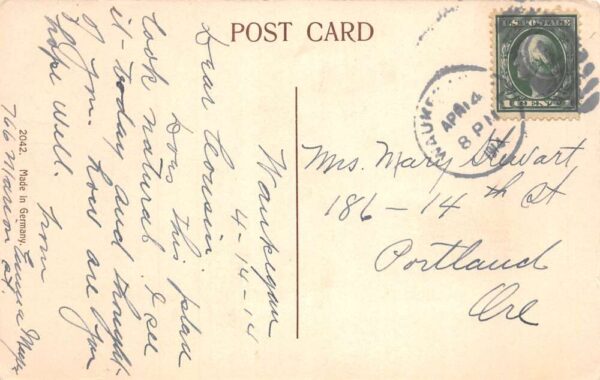 POST CARD
U.S. POSTAGE
1 CENT 1
WAUKE
APR 14
8 P
Mrs. Mary Stewart
186 - 14th St
Portland
Ore
Waukegan
4-14-14
Dear Cousin
Does this place
look natural. I see
it - today and thought
of you. how are you
hope well.
from
Emma
766 Marion St.
2042. Made in Germany.